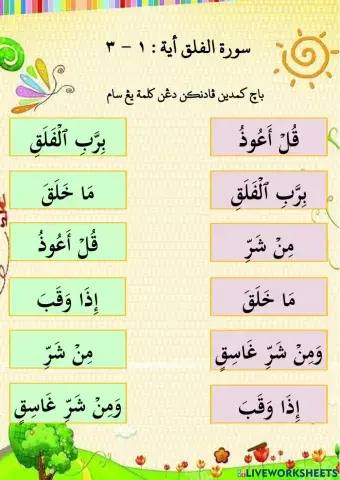 سورة الفلق أية : ١ - ٣
باچ كمدين ڤادنكن دڠن كلمة يڠ سام
قُلْ أَعُوذُ
بِرَبِّ ٱلْفَلَقِ
بِرَبِّ ٱلْفَلَقِ
مَا خَلَقَ
مِنْ شَرِّ
قُلْ أَعُوذُ
مَا خَلَقَ
إِذَا وَقَبَ
وَمِنْ شَرِّ غَاسِقٍ
مِنْ شَرِّ
إِذَا وَقَبَ
وَمِنْ شَرِّ غَاسِقٍ
LIVEWORKSHEETS